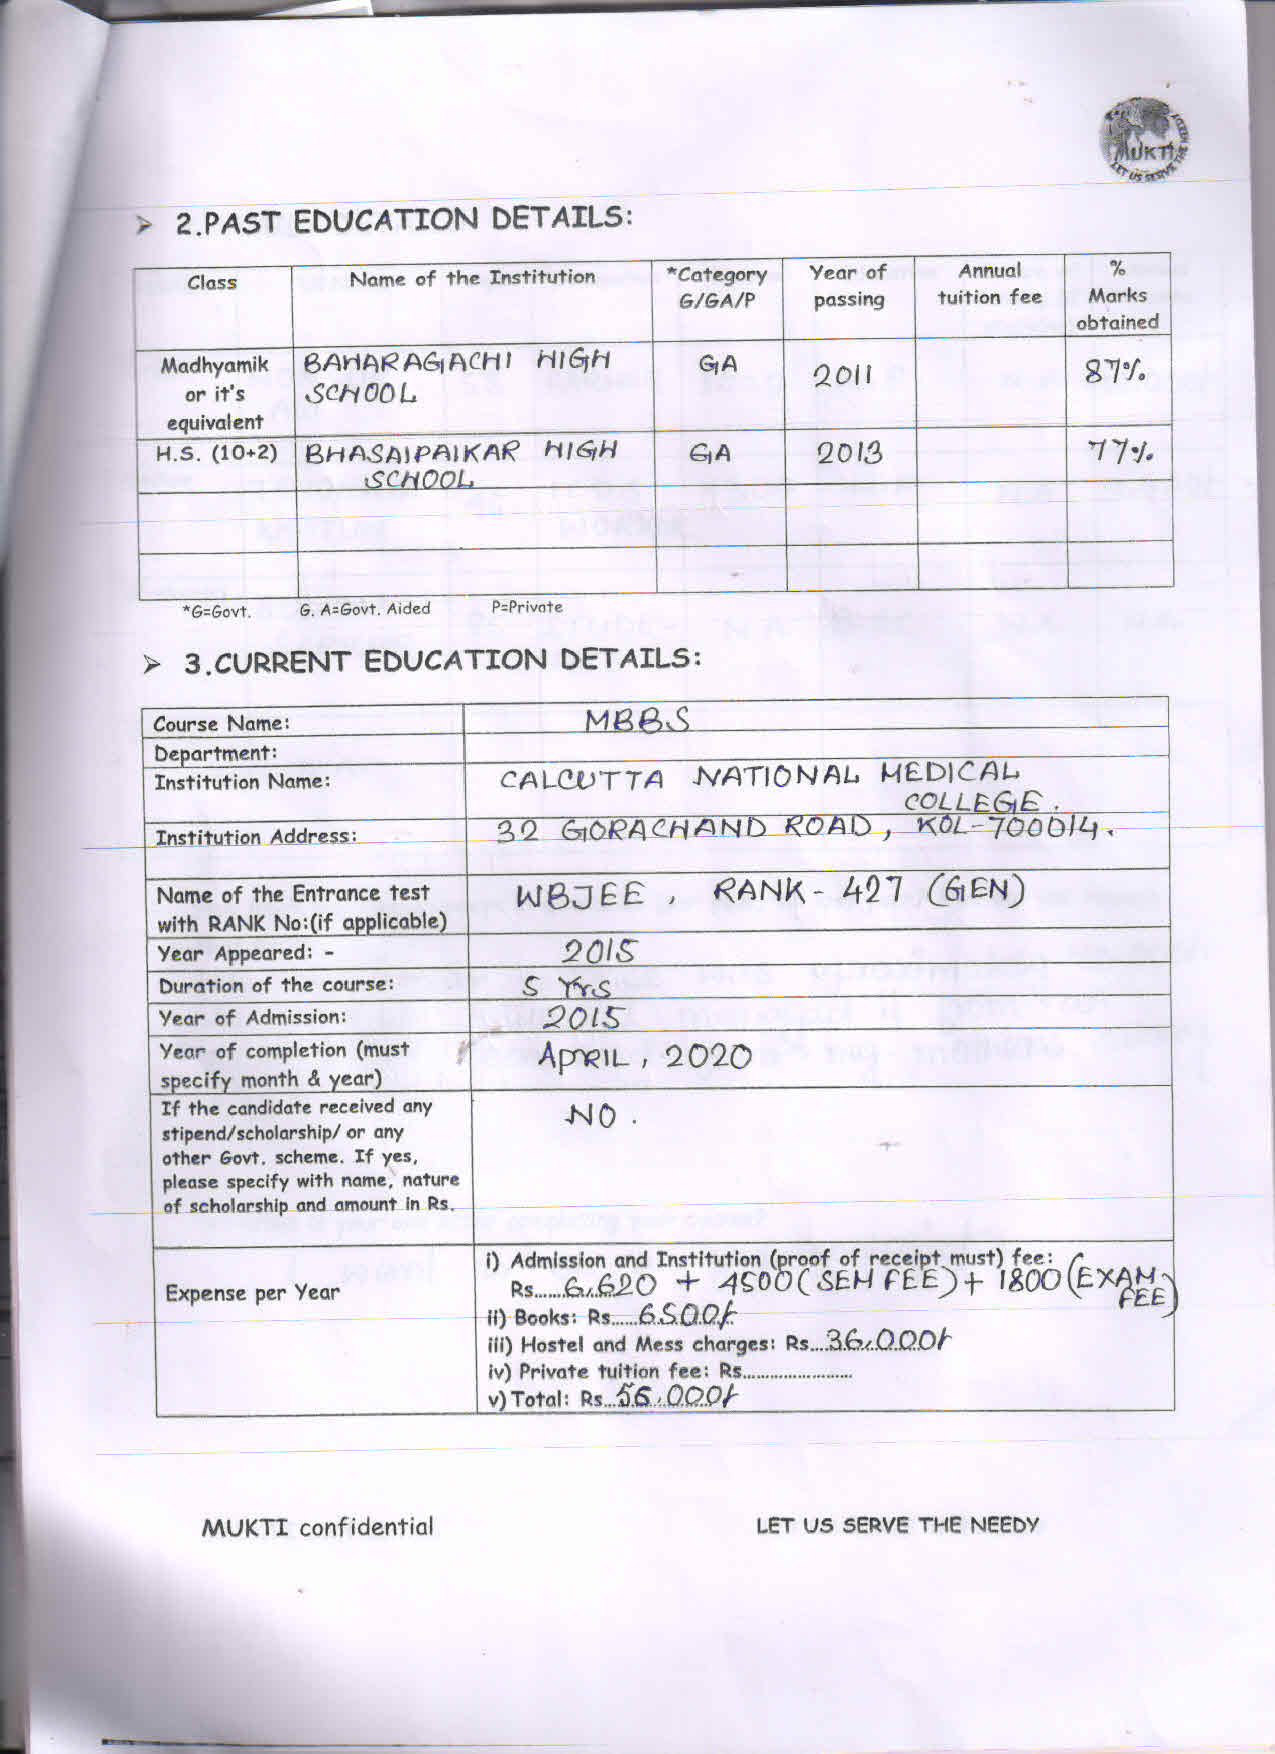 MUKTI
LET US SERVE THE NEEDY
➢ 2.PAST EDUCATION DETAILS:
Class Name of the Institution *Category G/GA/P Year of passing Annual tuition fee % Marks obtained
Madhyamik or it's equivalent BAHARAGACHI HIGH SCHOOL GA 2011 87%
H.S. (10+2) BHASAIPAIKAR HIGH SCHOOL GA 2013 77%
*G=Govt. G. A=Govt. Aided P=Private
➢ 3.CURRENT EDUCATION DETAILS:
Course Name: MBBS
Department:
Institution Name: CALCUTTA NATIONAL MEDICAL
COLLEGE.
Institution Address: 32 GORACHAND ROAD, KOL-700014.
Name of the Entrance test WBJEE, RANK- 427 (GEN)
with RANK No:(if applicable)
Year Appeared: - 2015
Duration of the course: 5 Yrs
Year of Admission: 2015
Year of completion (must APRIL, 2020
specify month & year)
If the candidate received any NO.
stipend/scholarship/ or any
other Govt. scheme. If yes,
please specify with name, nature
of scholarship and amount in Rs.
Expense per Year
i) Admission and Institution (proof of receipt must) fee:
Rs......6,620 + 4500 (SEM FEE) + 1800 (EXAM
FEE)
ii) Books: Rs......6500/-
iii) Hostel and Mess charges: Rs....36,000/-
iv) Private tuition fee: Rs........................
v) Total: Rs...56,000/-
MUKTI confidential LET US SERVE THE NEEDY